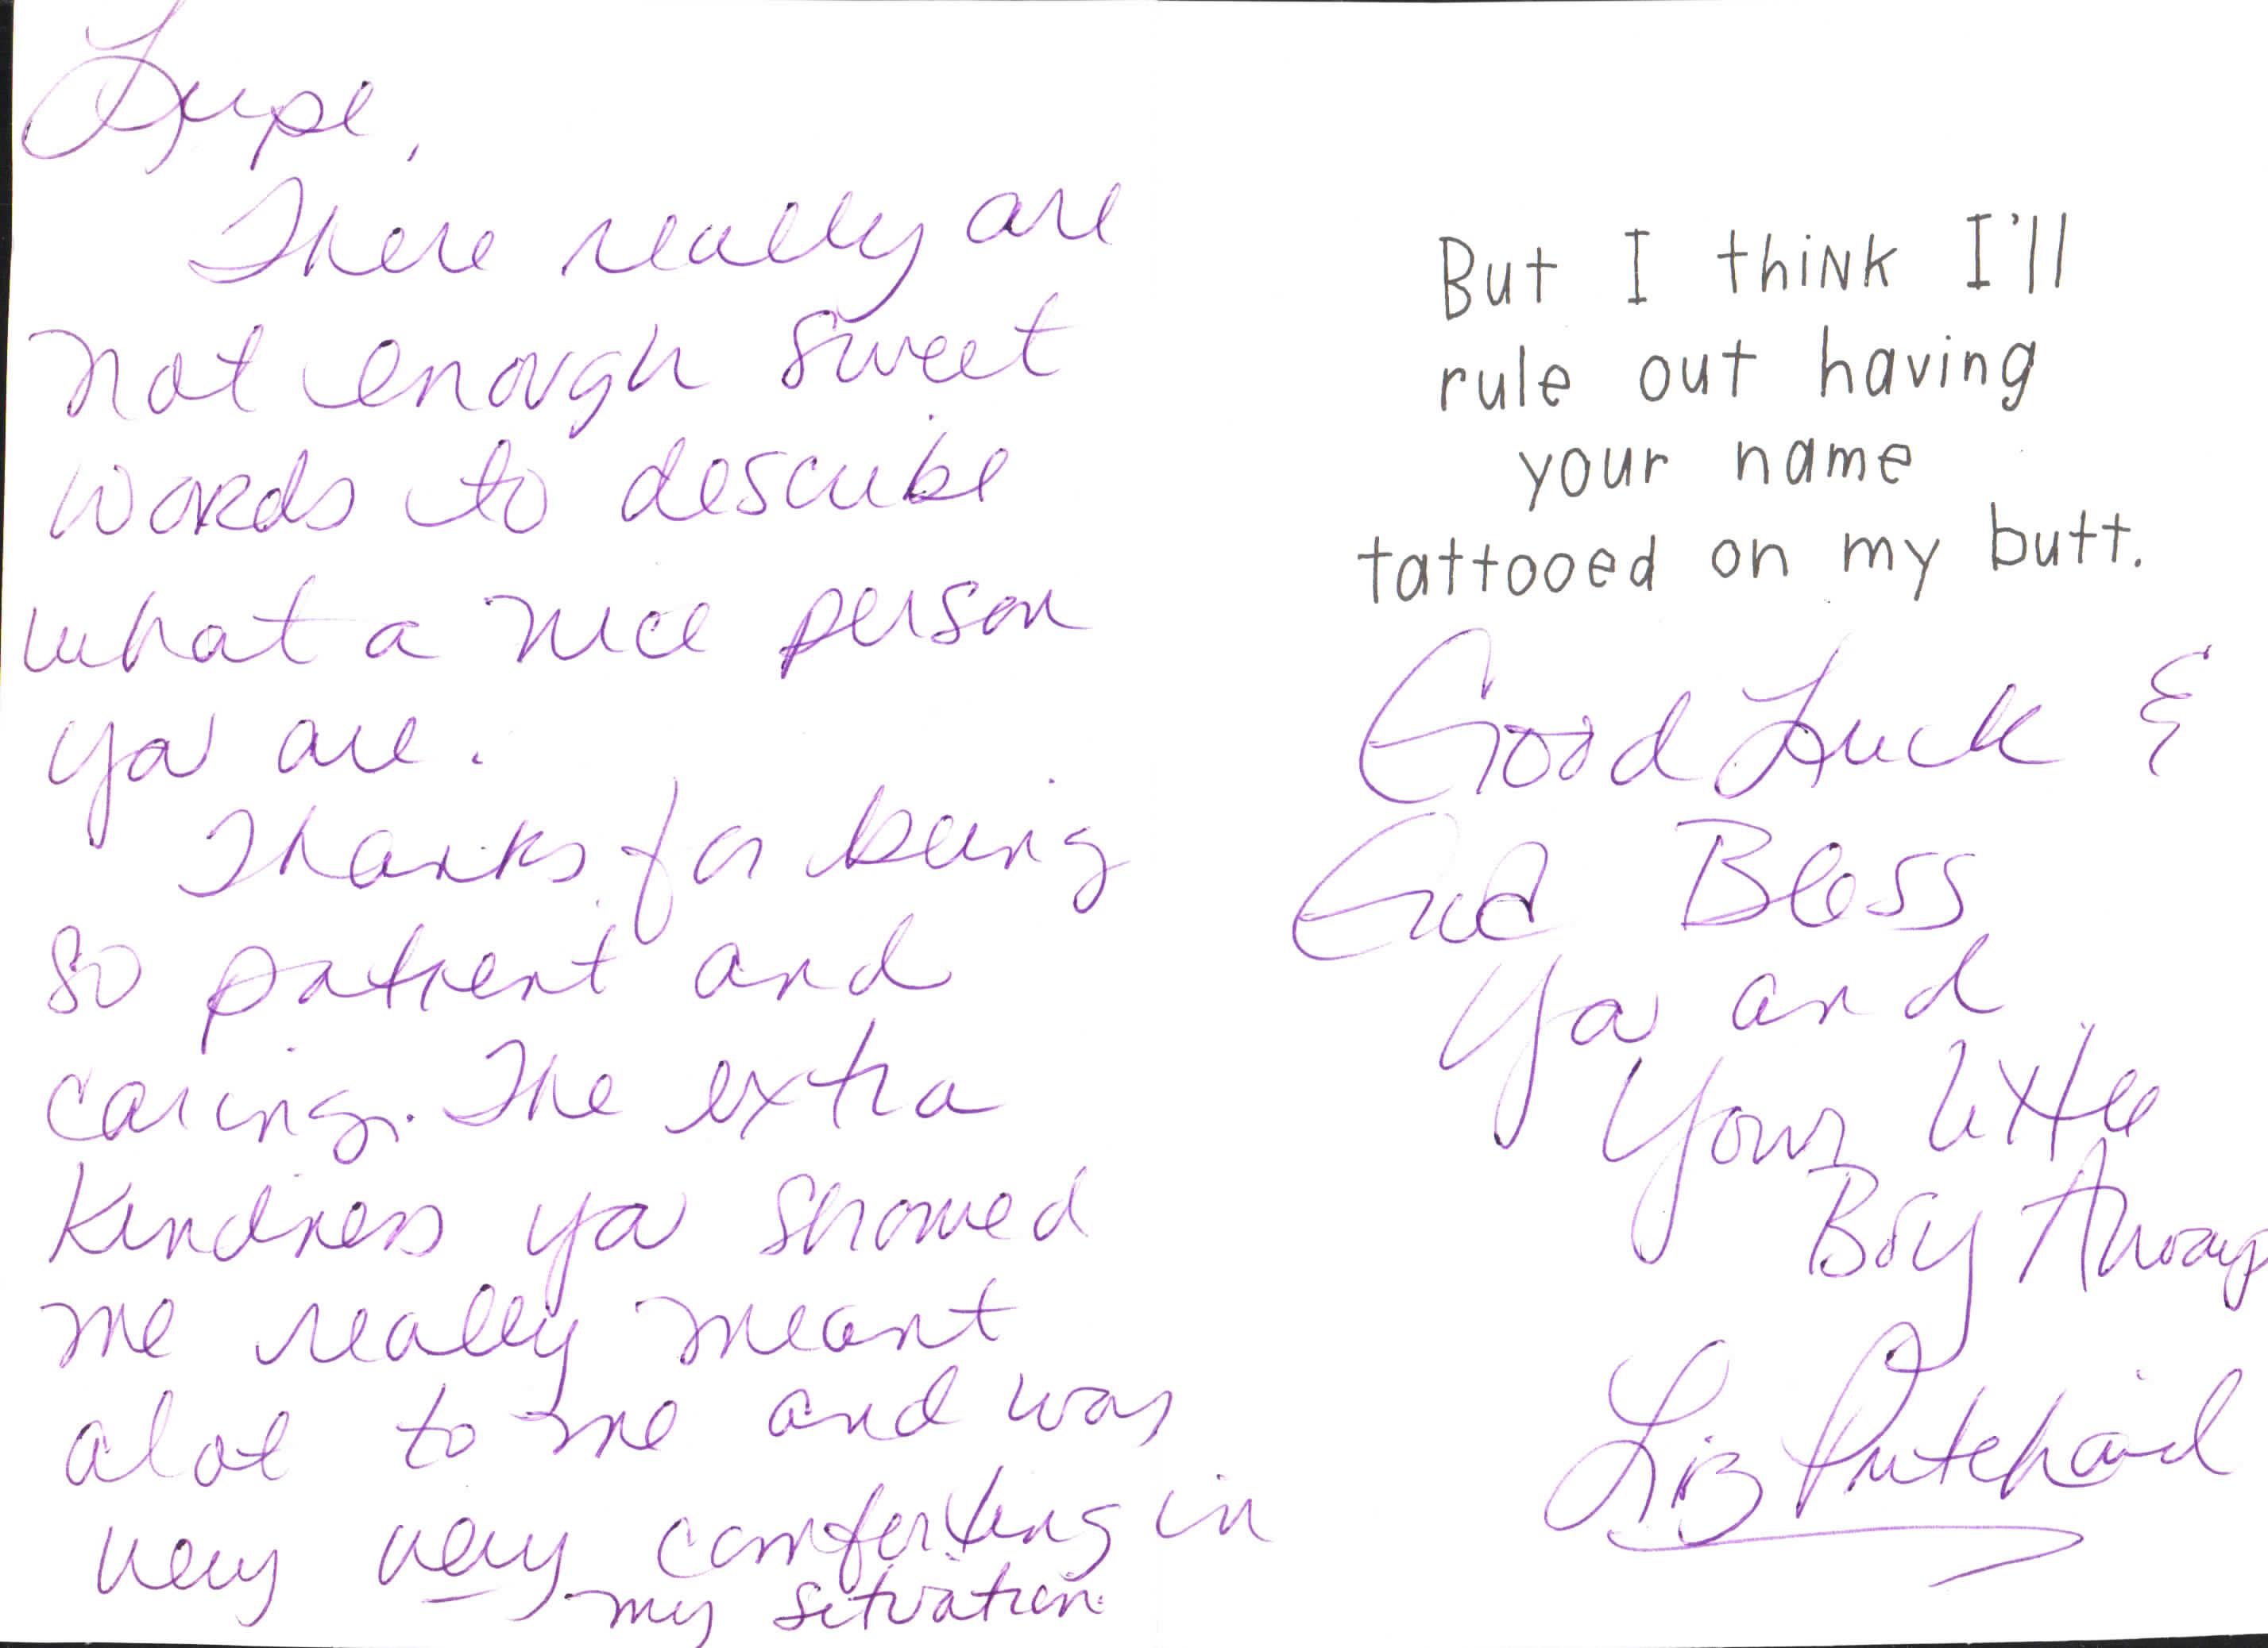 Lupe,
There really are
not enough sweet
words to describe
what a nice person
ya are.
Thanks for being
so patient and
caring. The extra
kindness ya showed
me really meant
alot to me and was
very very comforting in
my setuation.
But I think I'll
rule out having
your name
tattooed on my butt.
Good Luck &
God Bless
Ya and
Your little
Boy Always
Liz Pritchard